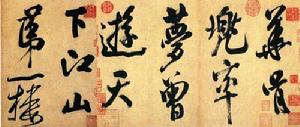 華胥
兜率
夢曾
遊天
下江山
第一樓